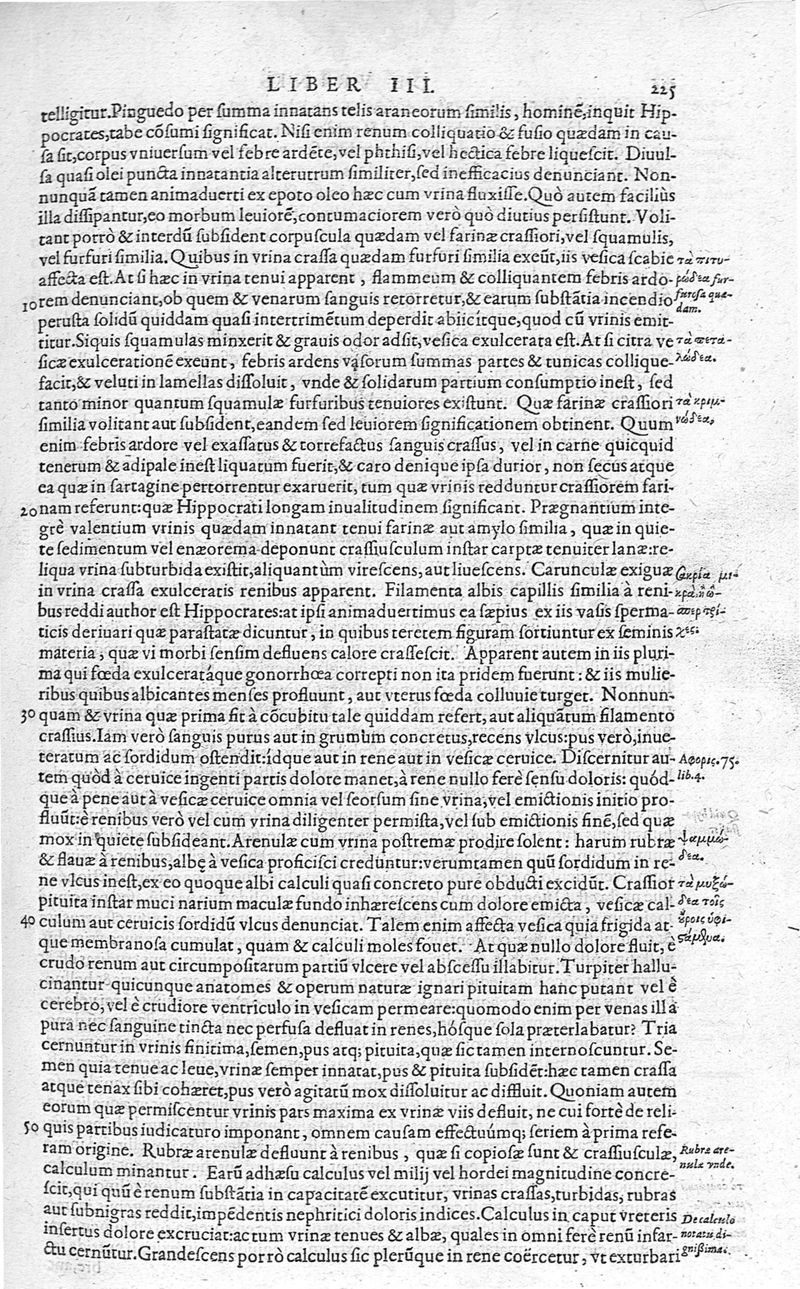 LIBER III.
225
telligitur. Pinguedo per summa innatans telis araneorum similis, hominē, inquit Hip-
pocrates, tabe cōsumi significat. Nisi enim renum colliquatio & fusio quædam in cau-
sa sit, corpus vniuersum vel febre ardēte, vel phthisi, vel hectica febre liquescit. Diuul-
sa quasi olei puncta innatantia alterutrum similiter, sed inefficacius denunciant. Non-
nunquā tamen animaduerti ex epoto oleo hæc cum vrina fluxisse. Quò autem faciliùs
illa dissipantur, eo morbum leuiorē, contumaciorem verò quò diutius persistunt. Voli-
tant porrò & interdū subsident corpuscula quædam vel farinæ crassiori, vel squamulis,
vel furfuri similia. Quibus in vrina crassa quædam furfuri similia exeūt, iis vesica scabie
τὰ πιτυ-
affecta est. At si hæc in vrina tenui apparent, flammeum & colliquantem febris ardo-
ρώδεα fur-
10 rem denunciant, ob quem & venarum sanguis retorretur, & earum substātia incendio
furosa quæ-
dam.
perusta solidū quiddam quasi intertrimētum deperdit abiicítque, quod cū vrinis emit-
titur. Siquis squamulas minxerit & grauis odor adsit, vesica exulcerata est. At si citra ve
τὰ πετα-
sicæ exulcerationē exeunt, febris ardens vasorum summas partes & tunicas collique-
λώδεα.
facit, & veluti in lamellas dissoluit, vnde & solidarum partium consumptio inest, sed
tanto minor quantum squamulæ furfuribus tenuiores existunt. Quæ farinæ crassiori
τὰ κριμ-
similia volitant aut subsident, eandem sed leuiorem significationem obtinent. Quum
νώδεα,
enim febris ardore vel exassatus & torrefactus sanguis crassus, vel in carne quicquid
tenerum & adipale inest liquatum fuerit, & caro denique ipsa durior, non secus atque
ea quæ in sartagine pertorrentur exaruerit, tum quæ vrinis redduntur crassiorem fari-
20 nam referunt: quæ Hippocrati longam inualitudinem significant. Prægnantium inte-
grè valentium vrinis quædam innatant tenui farinæ aut amylo similia, quæ in quie-
te sedimentum vel enæorema deponunt crassiusculum instar carptæ tenuiter lanæ: re-
liqua vrina subturbida existit, aliquantùm virescens, aut liuescens. Carunculæ exiguæ
σαρκία μι-
in vrina crassa exulceratis renibus apparent. Filamenta albis capillis similia à reni-
bus reddi author est Hippocrates: at ipsi animaduertimus ea sæpius ex iis vasis sperma-
ticis deriuari quæ parastatæ dicuntur, in quibus teretem figuram sortiuntur ex seminis
materia, quæ vi morbi sensim defluens calore crassescit. Apparent autem in iis pluri-
ma qui fœda exulceratáque gonorrhœa correpti non ita pridem fuerunt: & iis mulie-
ribus quibus albicantes menses profluunt, aut vterus fœda colluuie turget. Nonnun-
30 quam & vrina quæ prima fit à cōcubitu tale quiddam refert, aut aliquātum filamento
crassius. Iam verò sanguis purus aut in grumum concretus, recens vlcus: pus verò, inue-
teratum ac sordidum ostendit: ídque aut in rene aut in vesicæ ceruice. Discernitur au-
Aφορις. 75.
tem quòd à ceruice ingenti partis dolore manet, à rene nullo ferè sensu doloris: quód-
lib. 4.
que à pene aut à vesicæ ceruice omnia vel seorsum sine vrina, vel emictionis initio pro-
fluūt: è renibus verò vel cum vrina diligenter permista, vel sub emictionis finē, sed quæ
mox in quiete subsideant. Arenulæ cum vrina postremæ prodire solent: harum rubræ
ψαμμώ-
& flauæ à renibus, albę à vesica proficisci creduntur: verumtamen quū sordidum in re-
δεα.
ne vlcus inest, ex eo quoque albi calculi quasi concreto pure obducti excidūt. Crassior
τὰ μυξώ-
pituita instar muci narium maculæ fundo inhærescens cum dolore emicta, vesicæ cal-
δεα τοῖς
40 culum aut ceruicis sordidū vlcus denunciat. Talem enim affecta vesica quia frigida at-
que membranosa cumulat, quam & calculi moles fouet. At quæ nullo dolore fluit, è
crudo renum aut circumpositarum partiū vlcere vel abscessu illabitur. Turpiter hallu-
cinantur quicunque anatomes & operum naturæ ignari pituitam hanc putant vel è
cerebro, vel è crudiore ventriculo in vesicam permeare: quomodo enim per venas illa
pura nec sanguine tincta nec perfusa defluat in renes, hósque sola præterlabatur? Tria
cernuntur in vrinis finitima, semen, pus atq; pituita, quæ sic tamen internoscuntur. Se-
men quia tenue ac leue, vrinæ semper innatat, pus & pituita subsidēt: hæc tamen crassa
atque tenax sibi cohæret, pus verò agitatū mox dissoluitur ac diffluit. Quoniam autem
eorum quæ permiscentur vrinis pars maxima ex vrinæ viis defluit, ne cui fortè de reli-
50 quis partibus iudicaturo imponant, omnem causam effectuúmq; seriem à prima refe-
ram origine. Rubræ arenulæ defluunt à renibus, quæ si copiosæ sunt & crassiusculæ,
Rubræ are-
nulæ vnde.
calculum minantur. Earū adhæsu calculus vel milij vel hordei magnitudine concre-
scit, qui quū è renum substātia in capacitatē excutitur, vrinas crassas, turbidas, rubras
aut subnigras reddit, impēdentis nephritici doloris indices. Calculus in caput vreteris
De calculo
insertus dolore excruciat: actum vrinæ tenues & albæ, quales in omni ferè renū infar-
notatu di-
ctu cernūtur. Grandescens porrò calculus sic plerūque in rene coërcetur, vt exturbari
gnissima.